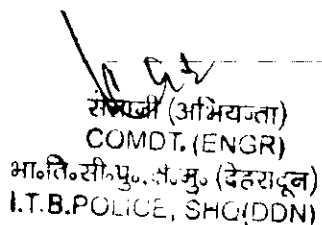 सेनानी (अभियन्ता)
COMDT. (ENGR)
भा॰ति॰सी॰पु॰, क्षे॰मु॰ (देहरादून)
I.T.B.POLICE, SHQ(DDN)